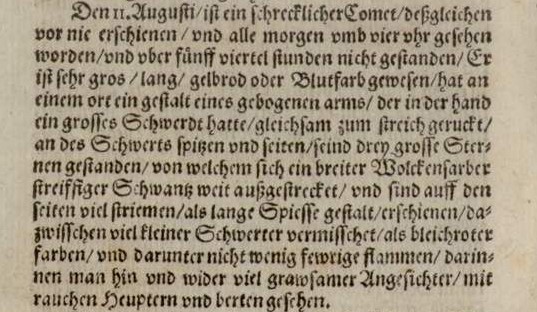 Den 11. Augusti/ist ein schrecklicher Comet/deßgleichen
vor nie erschienen/vnd alle morgen vmb vier vhr gesehen
worden/vnd vber fünff viertel stunden nicht gestanden/Er
ist sehr gros/lang/gelbrod oder Blutfarb gewesen/hat an
einem ort ein gestalt eines gebogenen arms/der in der hand
ein grosses Schwerdt hatte/gleichsam zum streich geruckt/
an des Schwerts spitzen vnd seiten/seind drey grosse Ster-
nen gestanden/von welchem sich ein breiter Wolckenfarber
streiffiger Schwantz weit außgestrecket/vnd sind auff den
seiten viel striemen/als lange Spiesse gestalt/erschienen/da-
zwisschen viel kleiner Schwerter vermisschet/als bleichroter
farben/vnd darunter nicht wenig fewrige flammen/darin-
nen man hin vnd wider viel grawsamer Angesichter/mit
rauchen Heuptern vnd berten gesehen.